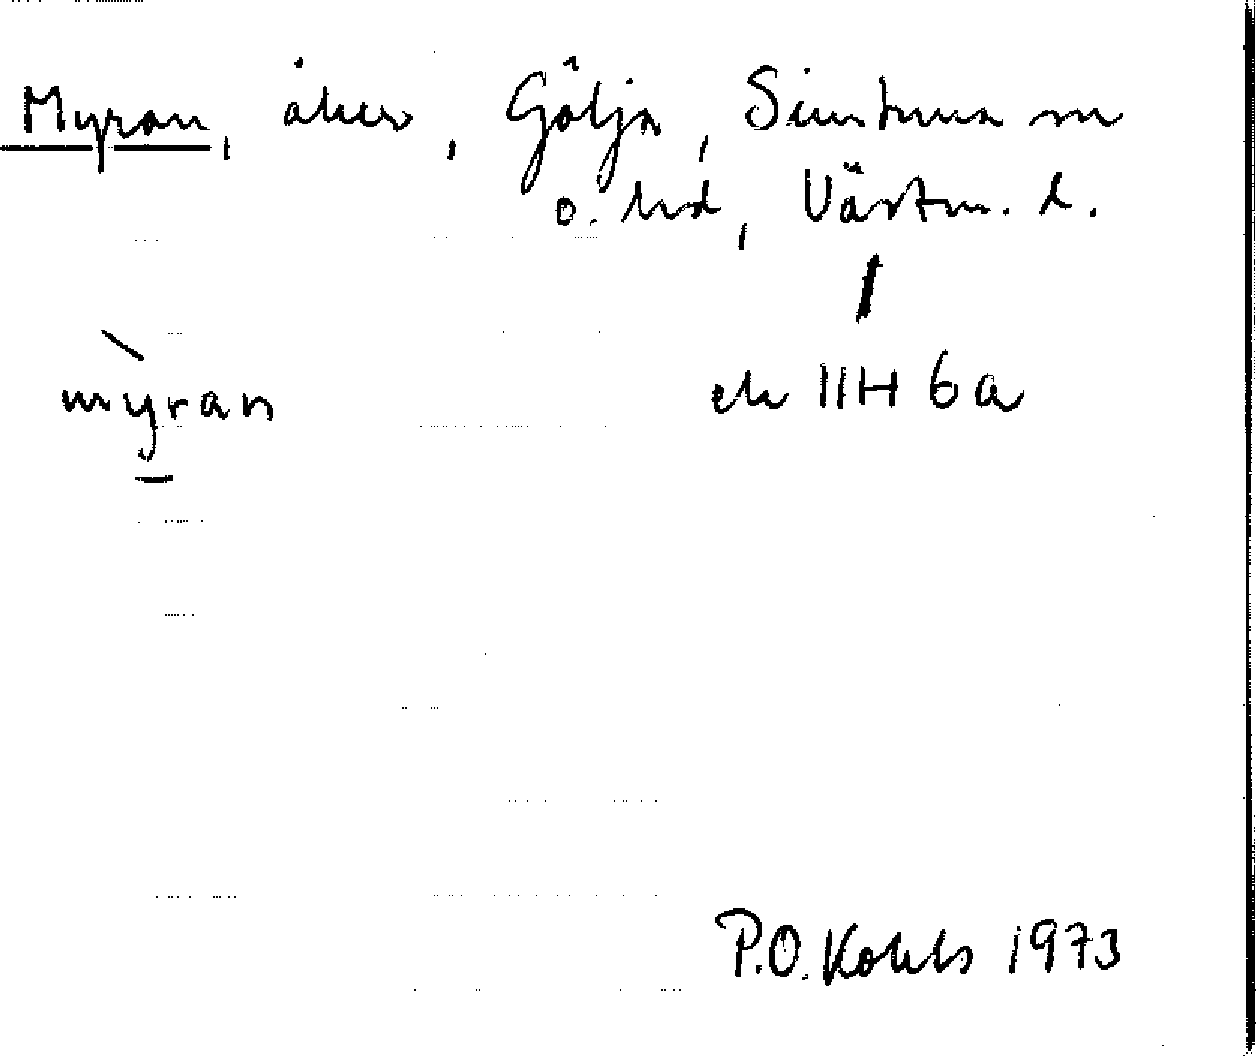 Myran, åker, Gölja, Simtuna sn
o. hd, Västm. l.
myran
ek 11H 6a
P.O. Kohls 1973